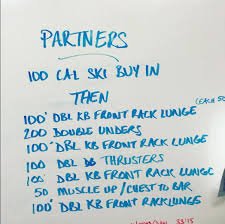 PARTNERS
100 CAL SKI BUY IN
THEN
(EACH 50
100' DBL KB FRONT RACK LUNGE
200 DOUBLE UNDERS
100' DBL KB FRONT RACK LUNGE
100 DBL DB THRUSTERS
100' DBL KB FRONT RACK LUNGE
50 MUSCLE UP/CHEST TO BAR
100' DBL KB FRONT RACK LUNGES